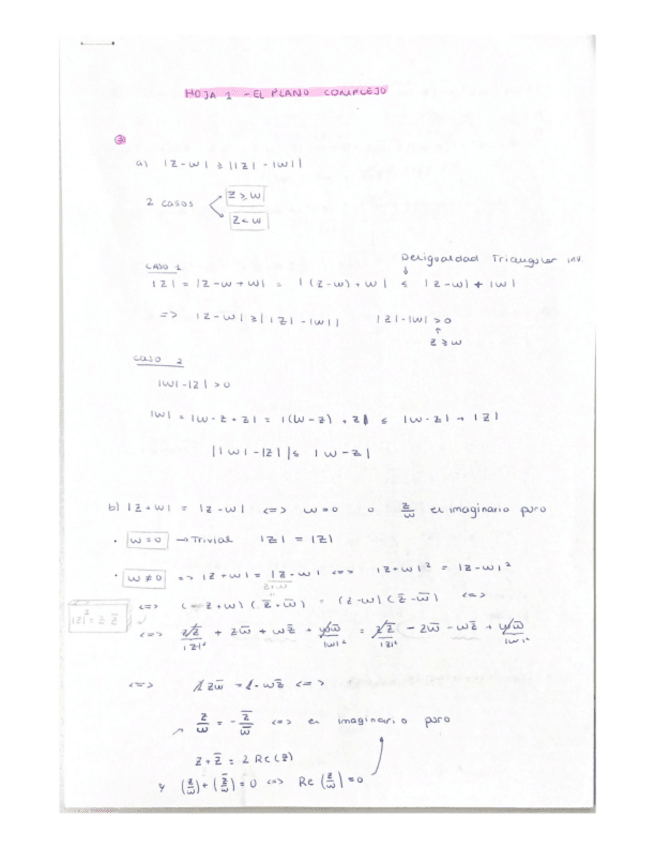 HOJA 1 - EL PLANO COMPLEJO
③
a) |z-w| ≥ ||z| - |w||
2 casos
z ≥ w
z < w
CASO 1
Desigualdad Triangular inv.
|z| = |z-w+w| = |(z-w)+w| ≤ |z-w| + |w|
=> |z-w| ≥ ||z| - |w|| |z|-|w| > 0
z ≥ w
CASO 2
|w|-|z| > 0
|w| = |w-z+z| = |(w-z)+z| ≤ |w-z| + |z|
||w|-|z|| ≤ |w-z|
b) |z+w| = |z-w| <=> w=0 o z/w es imaginario puro
· w=0 → Trivial |z| = |z|
· w≠0 => |z+w| = |z-w| <=> |z+w|² = |z-w|²
z+w
|z|² = z z̄
<=> (z+w)(z̄+w̄) = (z-w)(z̄-w̄) <=>
<=> zz̄ + zw̄ + wz̄ + ww̄ = zz̄ - zw̄ - wz̄ + ww̄
|z|² |w|² |z|² |w|²
<=> 2zw̄ = 2-wz̄ <=>
z/w = - z̄/w̄ <=> es imaginario puro
z+z̄ = 2 Re(z)
y (z/w) + (z̄/w̄) = 0 <=> Re(z/w) = 0